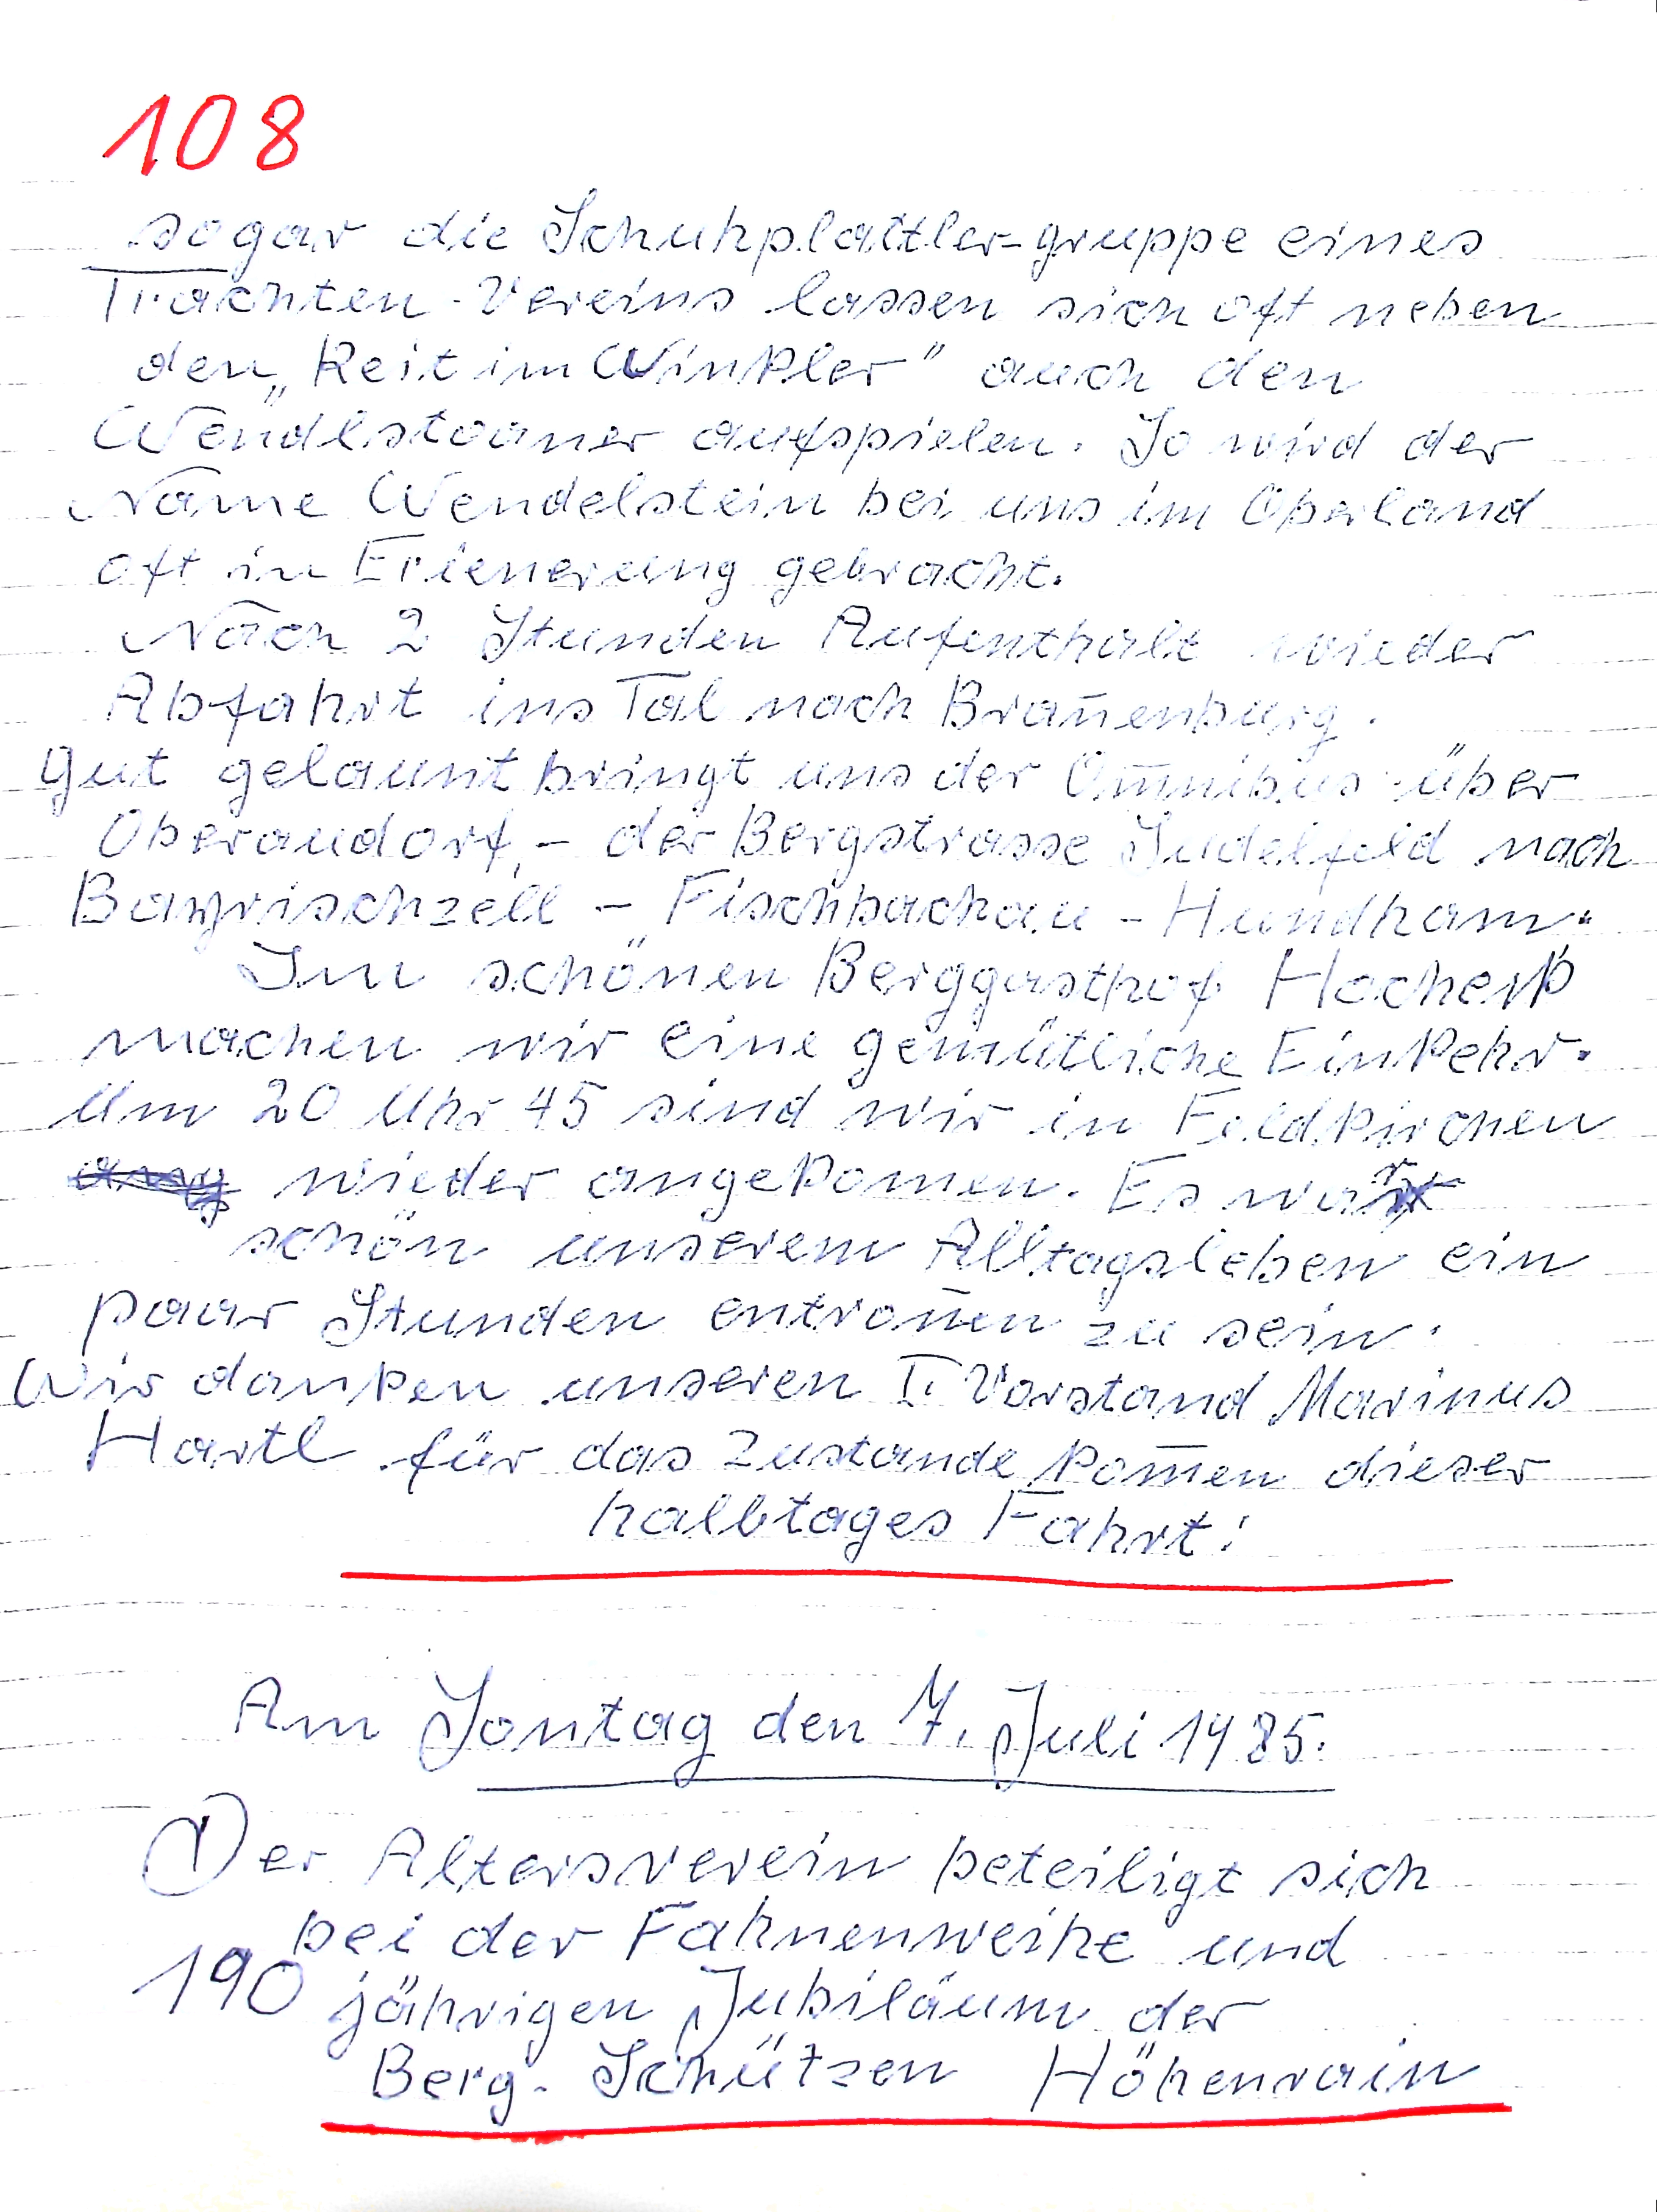 108
sogar die Schuhplattler-gruppe eines
Trachten-Vereins lassen sich oft neben
den „Reit im Winkler" auch den
Wendlstoaner aufspielen. So wird der
Name Wendelstein bei uns im Oberland
oft in Erienerung gebracht.
Nach 2 Stunden Aufenthalt wieder
Abfahrt ins Tal nach Bran̄enburg.
Gut gelaunt bringt uns der Om̄nibus über
Oberaudorf, - der Bergstrasse Sudelfeld nach
Bayrischzell - Fischbachau - Hundham.
Im schönen Berggasthof Hocheck
machen wir eine gemütliche Einkehr.
Um 20 Uhr 45 sind wir in Feldkirchen
wieder angekomen. Es war
schön unserem Alltagsleben ein
paar Stunden entron̄en zu sein.
Wir danken unseren I. Vorstand Marinus
Hartl für das Zustande kom̄en dieser
halbtages Fahrt!
Am Sontag den 7. Juli 1985.
Der Altersverein beteiligt sich
bei der Fahnenweihe und
190 jährigen Jubiläum der
Berg-Schützen Höhenrain